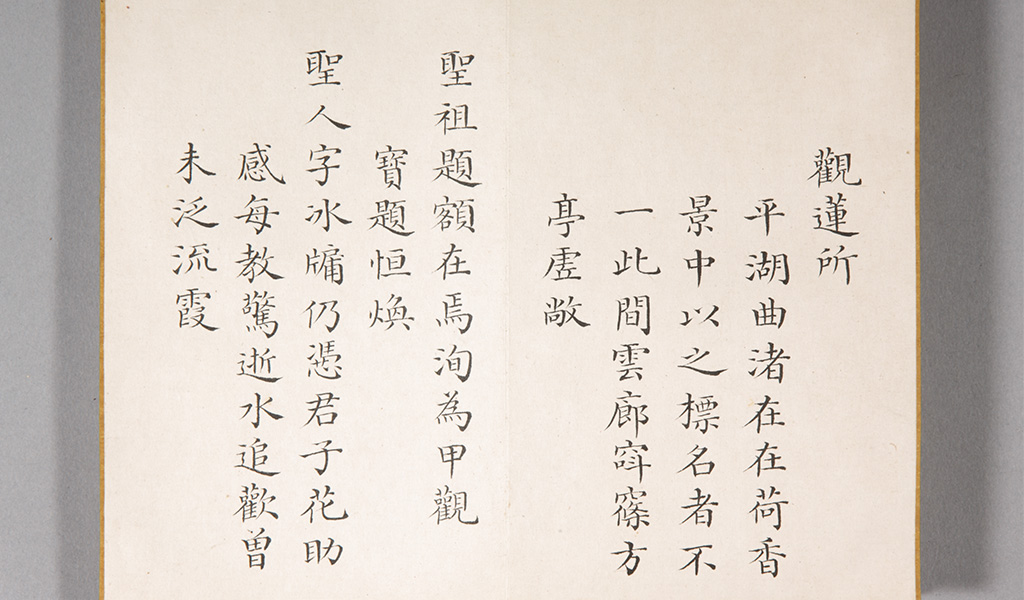 觀蓮所
平湖曲渚在在荷香
景中以之標名者不
一此間雲廊窱方
亭虛敞
聖祖題額在焉洵為甲觀
寶題恒煥
聖人字冰牖仍憑君子花助
感每教驚逝水追歡曾
未泛流霞